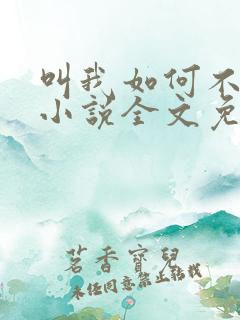 叫我如何不
小说全文免
茗香宝儿
未经同意禁止转载